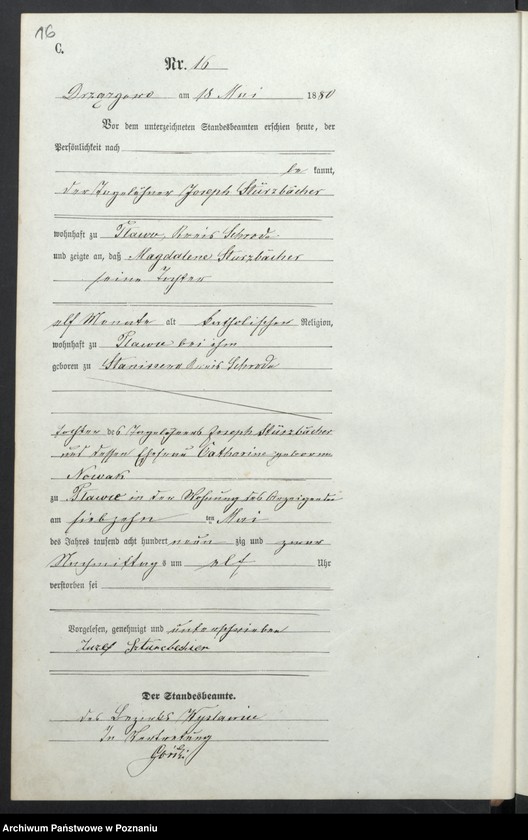 16
C.
Nr. 16
am 18 Mai 1880
Vor dem unterzeichneten Standesbeamten erschien heute, der
Persönlichkeit nach
be kannt,
der Tagelöhner Joseph Stürzbächer
wohnhaft zu Plawce, Kreis Schroda
und zeigte an, daß Magdalene Sturzbächer
seine Tochter
elf Monate alt katholischer Religion,
wohnhaft zu Plawce bei ihm
geboren zu Kreis Schroda
Tochter des Tagelöhners Joseph Stürzbächer
und dessen Ehefrau Catharine geborene
Nowak
zu Plawce in der Wohnung des Anzeigenden
am siebzehn ten Mai
des Jahres tausend acht hundert zig und zwar
Nachmittag s um elf Uhr
verstorben sei
Vorgelesen, genehmigt und unterschrieben
Juzef
Der Standesbeamte.
des Bezirks
In Vertretung
Archiwum Państwowe w Poznaniu